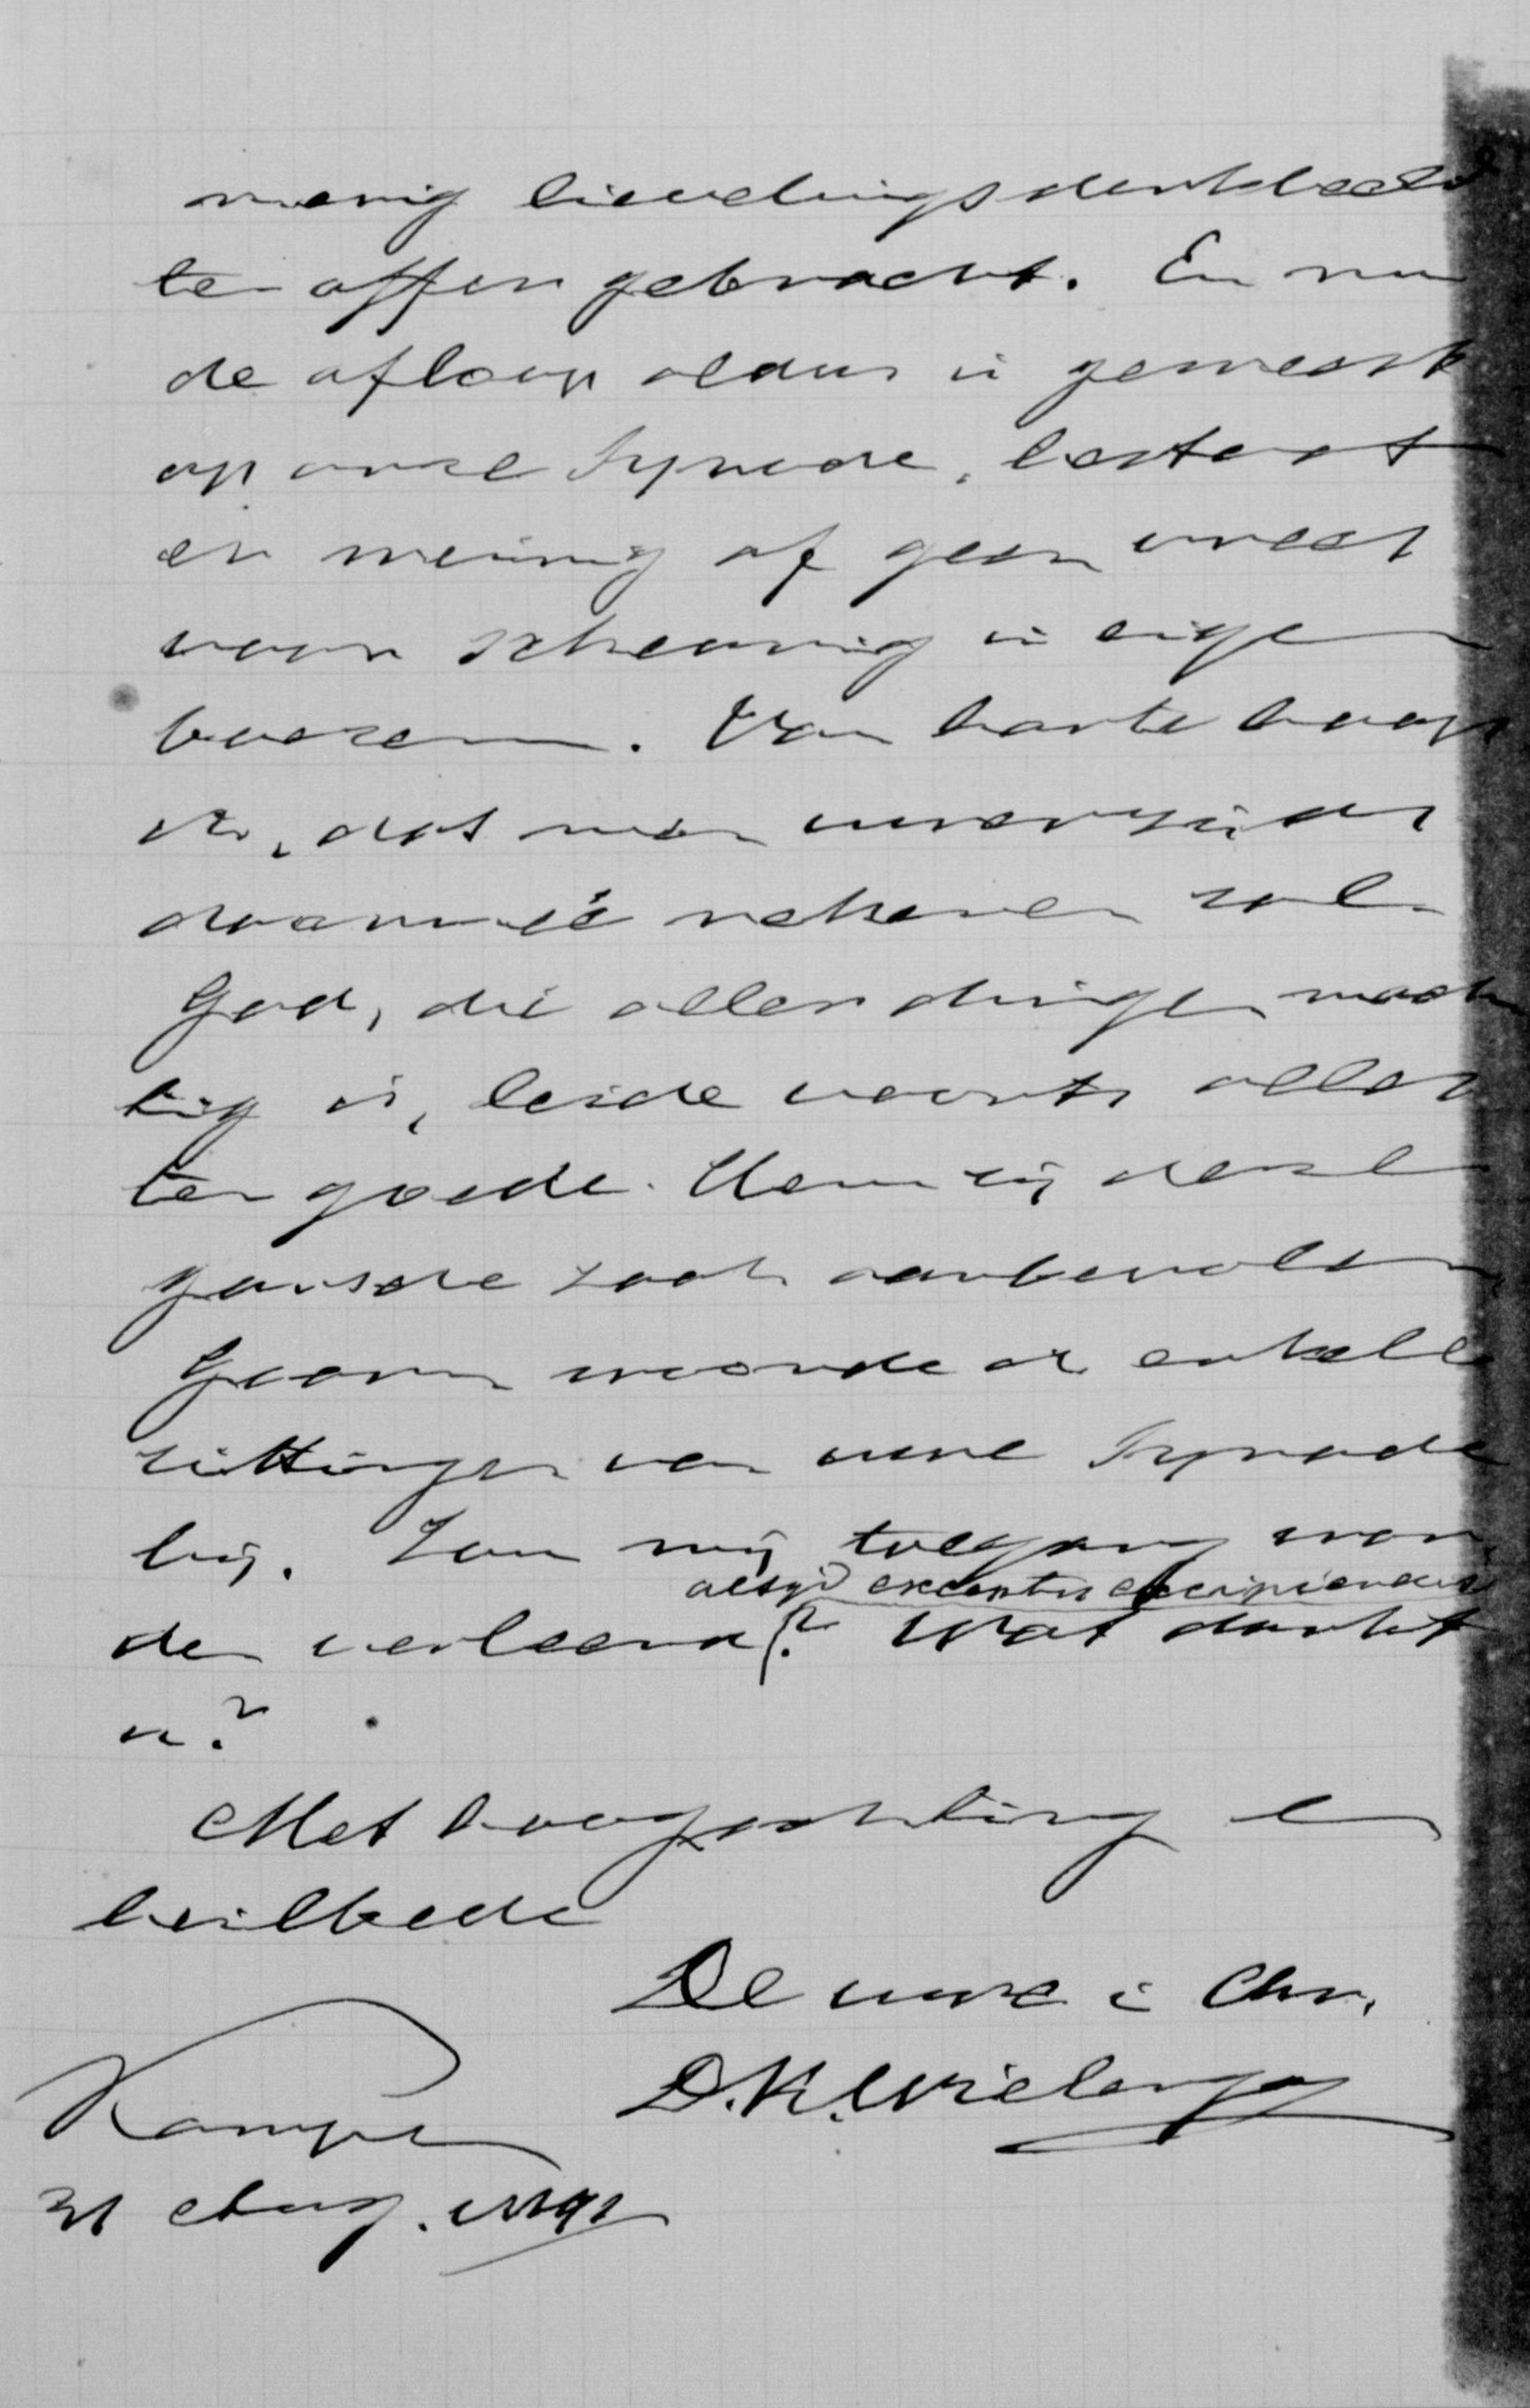 menig lievelingsdenkbeeld
ten offer gebracht. En nu
de afloop aldus is geweest
op onze Synode, bestaat
er weinig of geen vrees
voor scheuring in eigen
boezem. Van harte hoop
ik, dat men uwerzijds
daarmeê rekenen zal.
God, die aller dingen mach
tig is, leide voorts alles
ten goede. Hem zij deze
gansche zaak aanbevolen
Gaarne woonde ik enkele
zittingen van uwe Synode
bij. Zou mij toegang wor
altijd exceptis excipiendis
den verleend? Wat dunkt
u?
Met hoogachting en
heilbede
De uwe i Chr.
D.K. Wielenga
Kampen
31 Aug. 1891